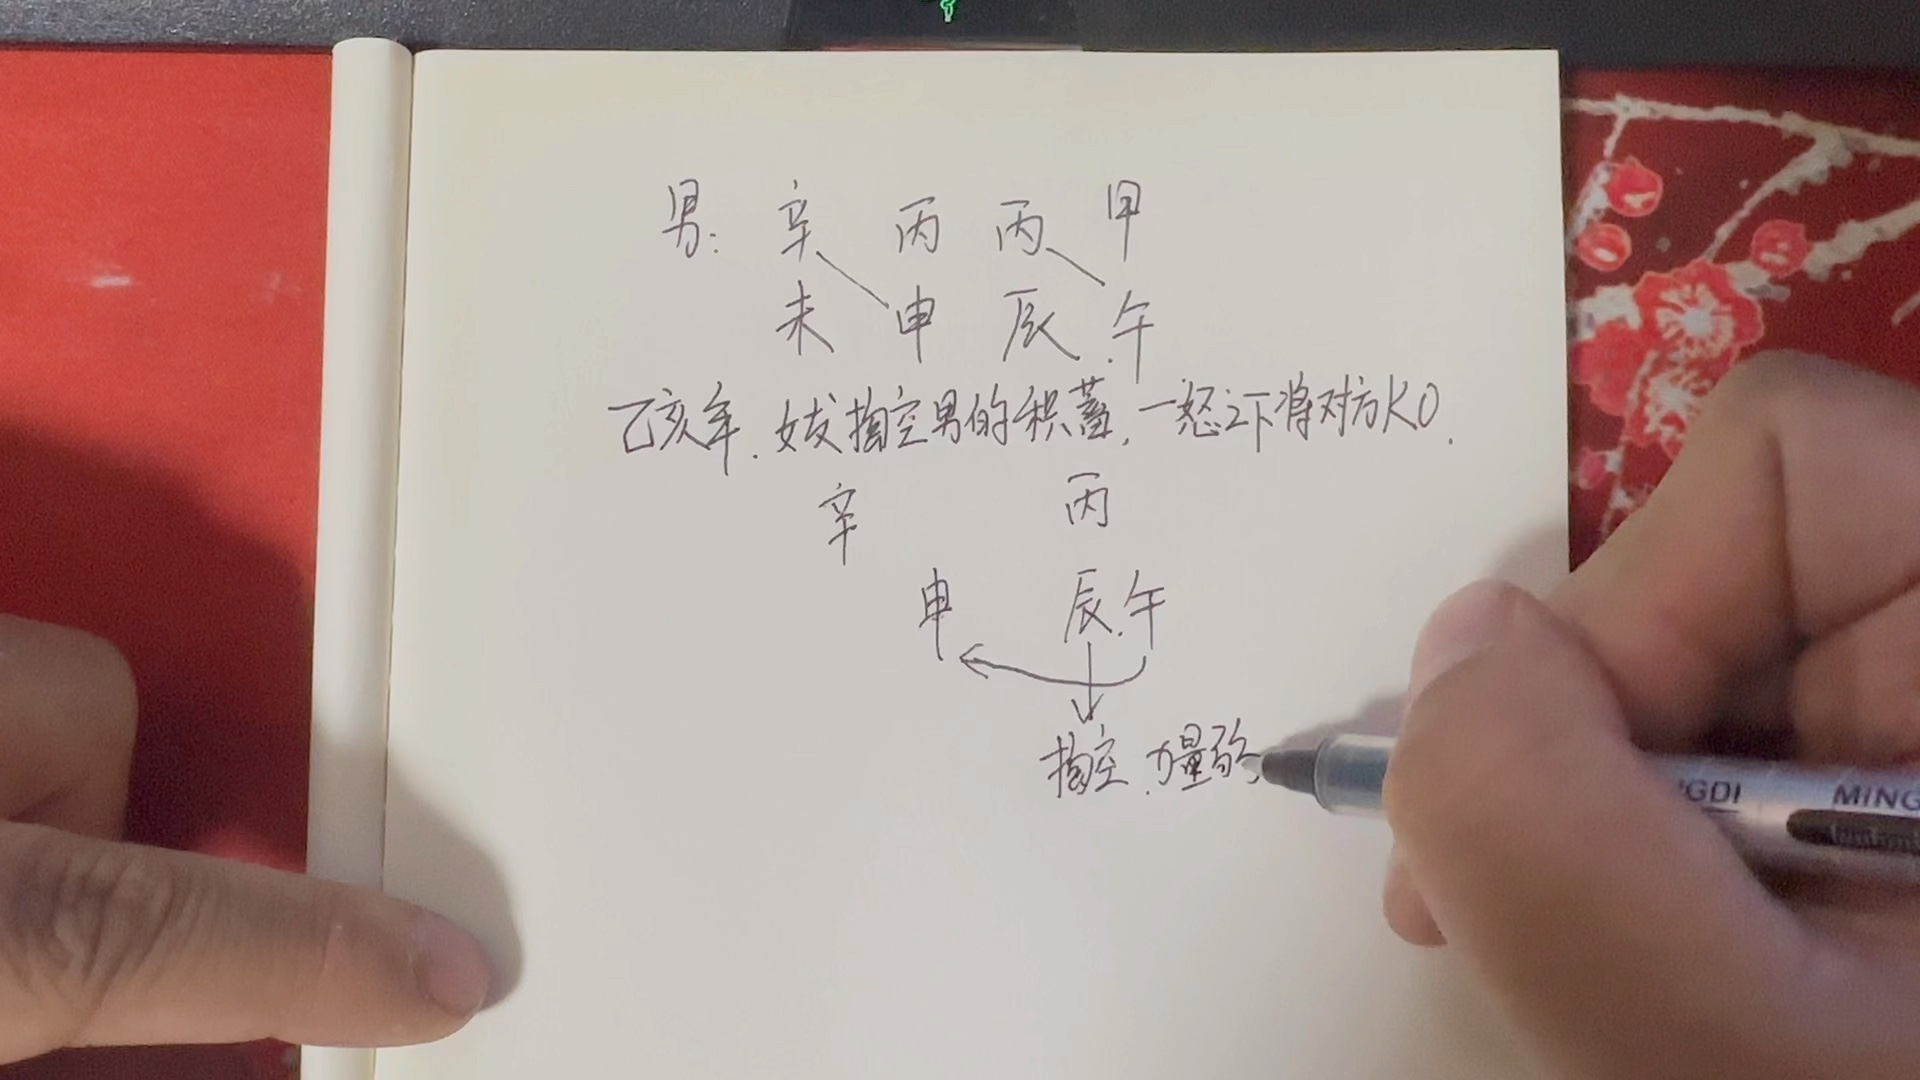 男: 辛 丙 丙 甲
未 申 辰 午
乙亥年.女友掏空男的积蓄,一怒之下将对方KO.
辛 丙
申 辰 午
掏空.力量
GDI MING